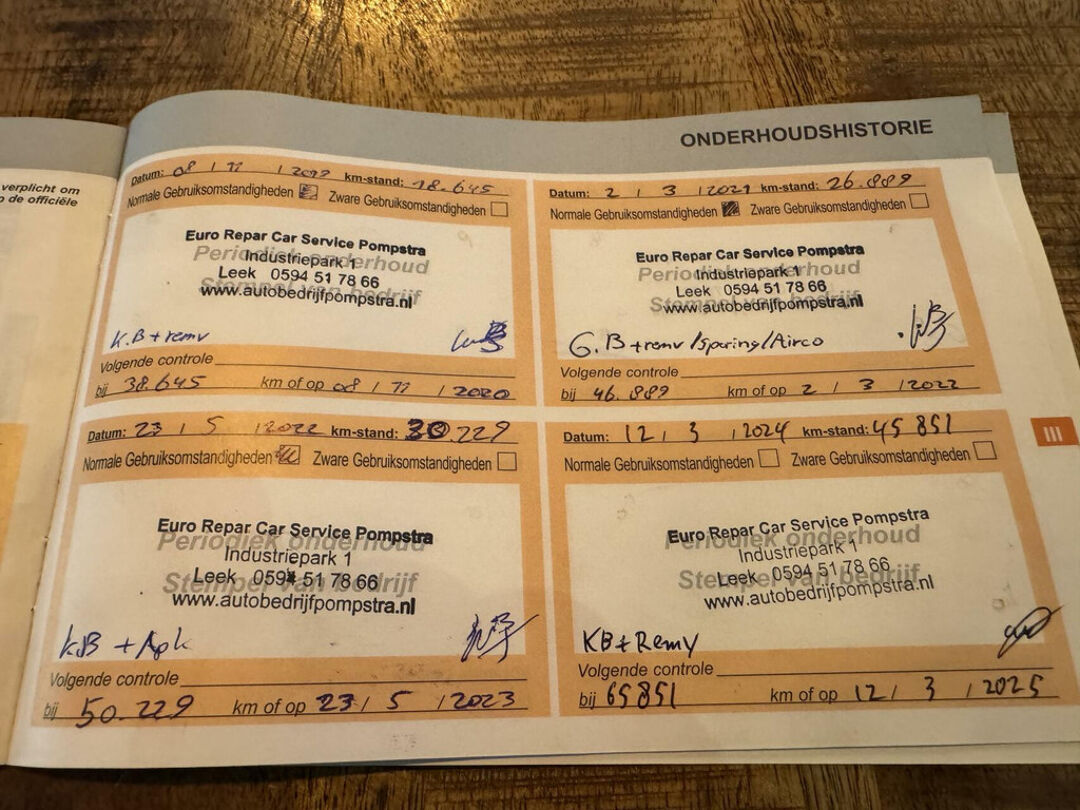 ONDERHOUDSHISTORIE
verplicht om
de officiële
Datum: 08 / 11 / 2019 km-stand: 18.645
Normale Gebruiksomstandigheden Zware Gebruiksomstandigheden
Periodiek onderhoud
Stempel van bedrijf
Euro Repar Car Service Pompstra
Industriepark 1
Leek 0594 51 78 66
www.autobedrijfpompstra.nl
K.B + remv
Volgende controle
bij 38.645 km of op 08 / 11 / 2020
Datum: 2 / 3 / 2021 km-stand: 26.889
Normale Gebruiksomstandigheden Zware Gebruiksomstandigheden
Periodiek onderhoud
Stempel van bedrijf
Euro Repar Car Service Pompstra
Industriepark 1
Leek 0594 51 78 66
www.autobedrijfpompstra.nl
G.B + remv / Sporing / Airco
Volgende controle
bij 46.889 km of op 2 / 3 / 2022
Datum: 23 / 5 / 2022 km-stand: 30.229
Normale Gebruiksomstandigheden Zware Gebruiksomstandigheden
Periodiek onderhoud
Stempel van bedrijf
Euro Repar Car Service Pompstra
Industriepark 1
Leek 0594 51 78 66
www.autobedrijfpompstra.nl
KB + Apk
Volgende controle
bij 50.229 km of op 23 / 5 / 2023
Datum: 12 / 3 / 2024 km-stand: 45851
Normale Gebruiksomstandigheden Zware Gebruiksomstandigheden
Periodiek onderhoud
Stempel van bedrijf
Euro Repar Car Service Pompstra
Industriepark 1
Leek 0594 51 78 66
www.autobedrijfpompstra.nl
KB + Remv
Volgende controle
bij 65851 km of op 12 / 3 / 2025
III